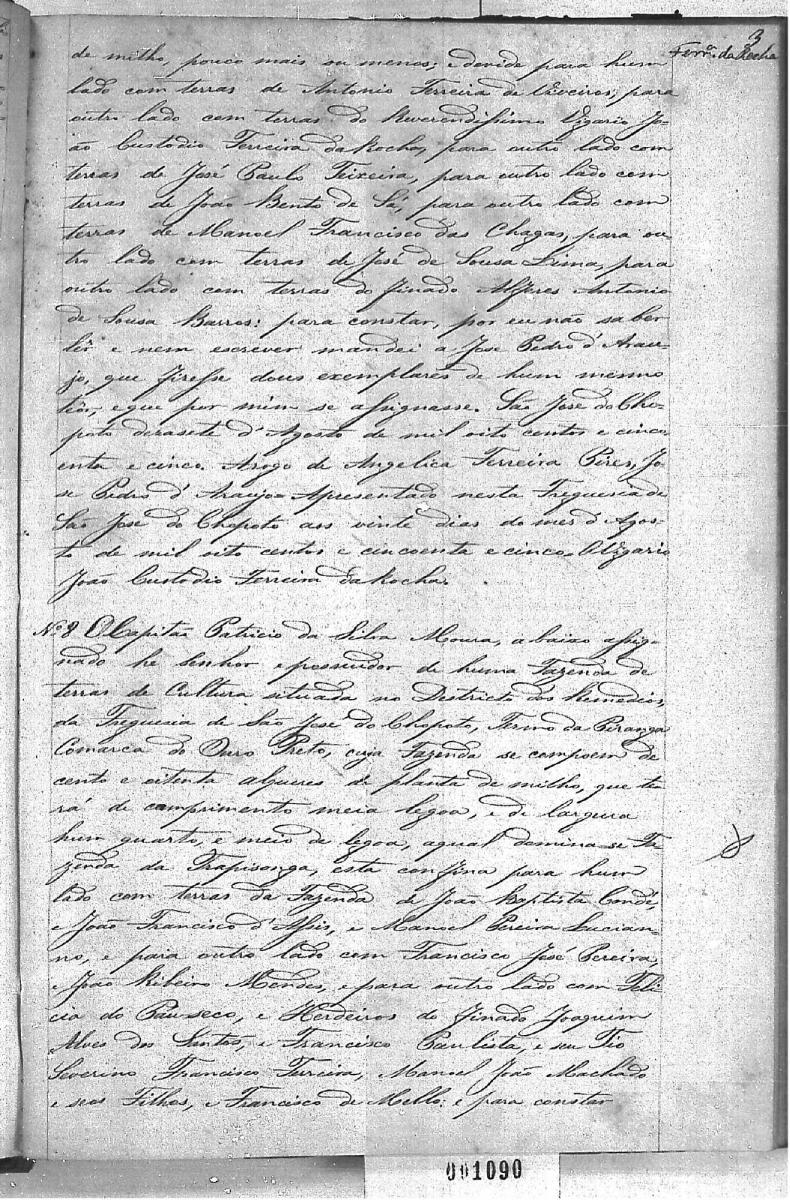 3
Ferrª. da Rocha
de milho, pouco mais ou menos; e devide para hum
lado com terras de Antonio Ferreira de Viveiros, para
outro lado com terras do Reverendissimo Vigario Jo-
ão Custodio Ferreira da Rocha, para outro lado com
terras de José Paulo Teixeira, para outro lado com
terras de João Bento de Sá, para outro lado com
terras de Manoel Francisco das Chagas, para ou-
tro lado com terras de José de Sousa Lima, para
outro lado com terras do finado Alferes Antonio
de Sousa Barros: para constar, por eu não saber
lêr e nem escrever mandei a Jose Pedro d'Arau-
jo, que fizesse dous exemplares de hum mesmo
tior, e que por mim se assignasse. São José do Cho-
poto dezasete d'Agosto de mil oito centos e cinco-
enta e cinco. Arogo de Angelica Ferreira Pires, Jo-
se Pedro d'Araujo = Apresentado nesta Freguesia de
São José do Chopoto aos vinte dias do mes d'Agos-
to de mil oito centos e cincoenta e cinco. O Vigario
João Custodio Ferreira da Rocha.
Nº 8 O Capitão Patricio da Silva Moura, abaixo assig-
nado he Senhor e possuidor de huma Fazenda de
terras de Cultura situada no Districto dos Remedios,
da Freguesia de São José do Chopoto, Termo da Piranga
Comarca do Ouro Preto, cuja Fazenda se compoem de
cento e oitenta alqueres de planta de milho, que te-
rá de comprimento meia legoa, e de largura
hum quarto, e meio de legoa, aqual domina-se Fa-
zenda da Trapisonga, esta confina para hum
lado com terras da Fazenda de João Baptista Condé,
e João Francisco d'Assis, e Manoel Pereira Lucian-
no, e para outro lado com Francisco José Pereira,
e João Ribeiro Mendes, e para outro lado com Feli-
cia do Pau-seco, e Herdeiros do finado Joaquim
Alves dos Santos, e Francisco Paulista, e seu Tio
Severino Francisco Ferreira, Manoel João Machado
e seos Filhos, e Francisco de Mello: e para constar
001090